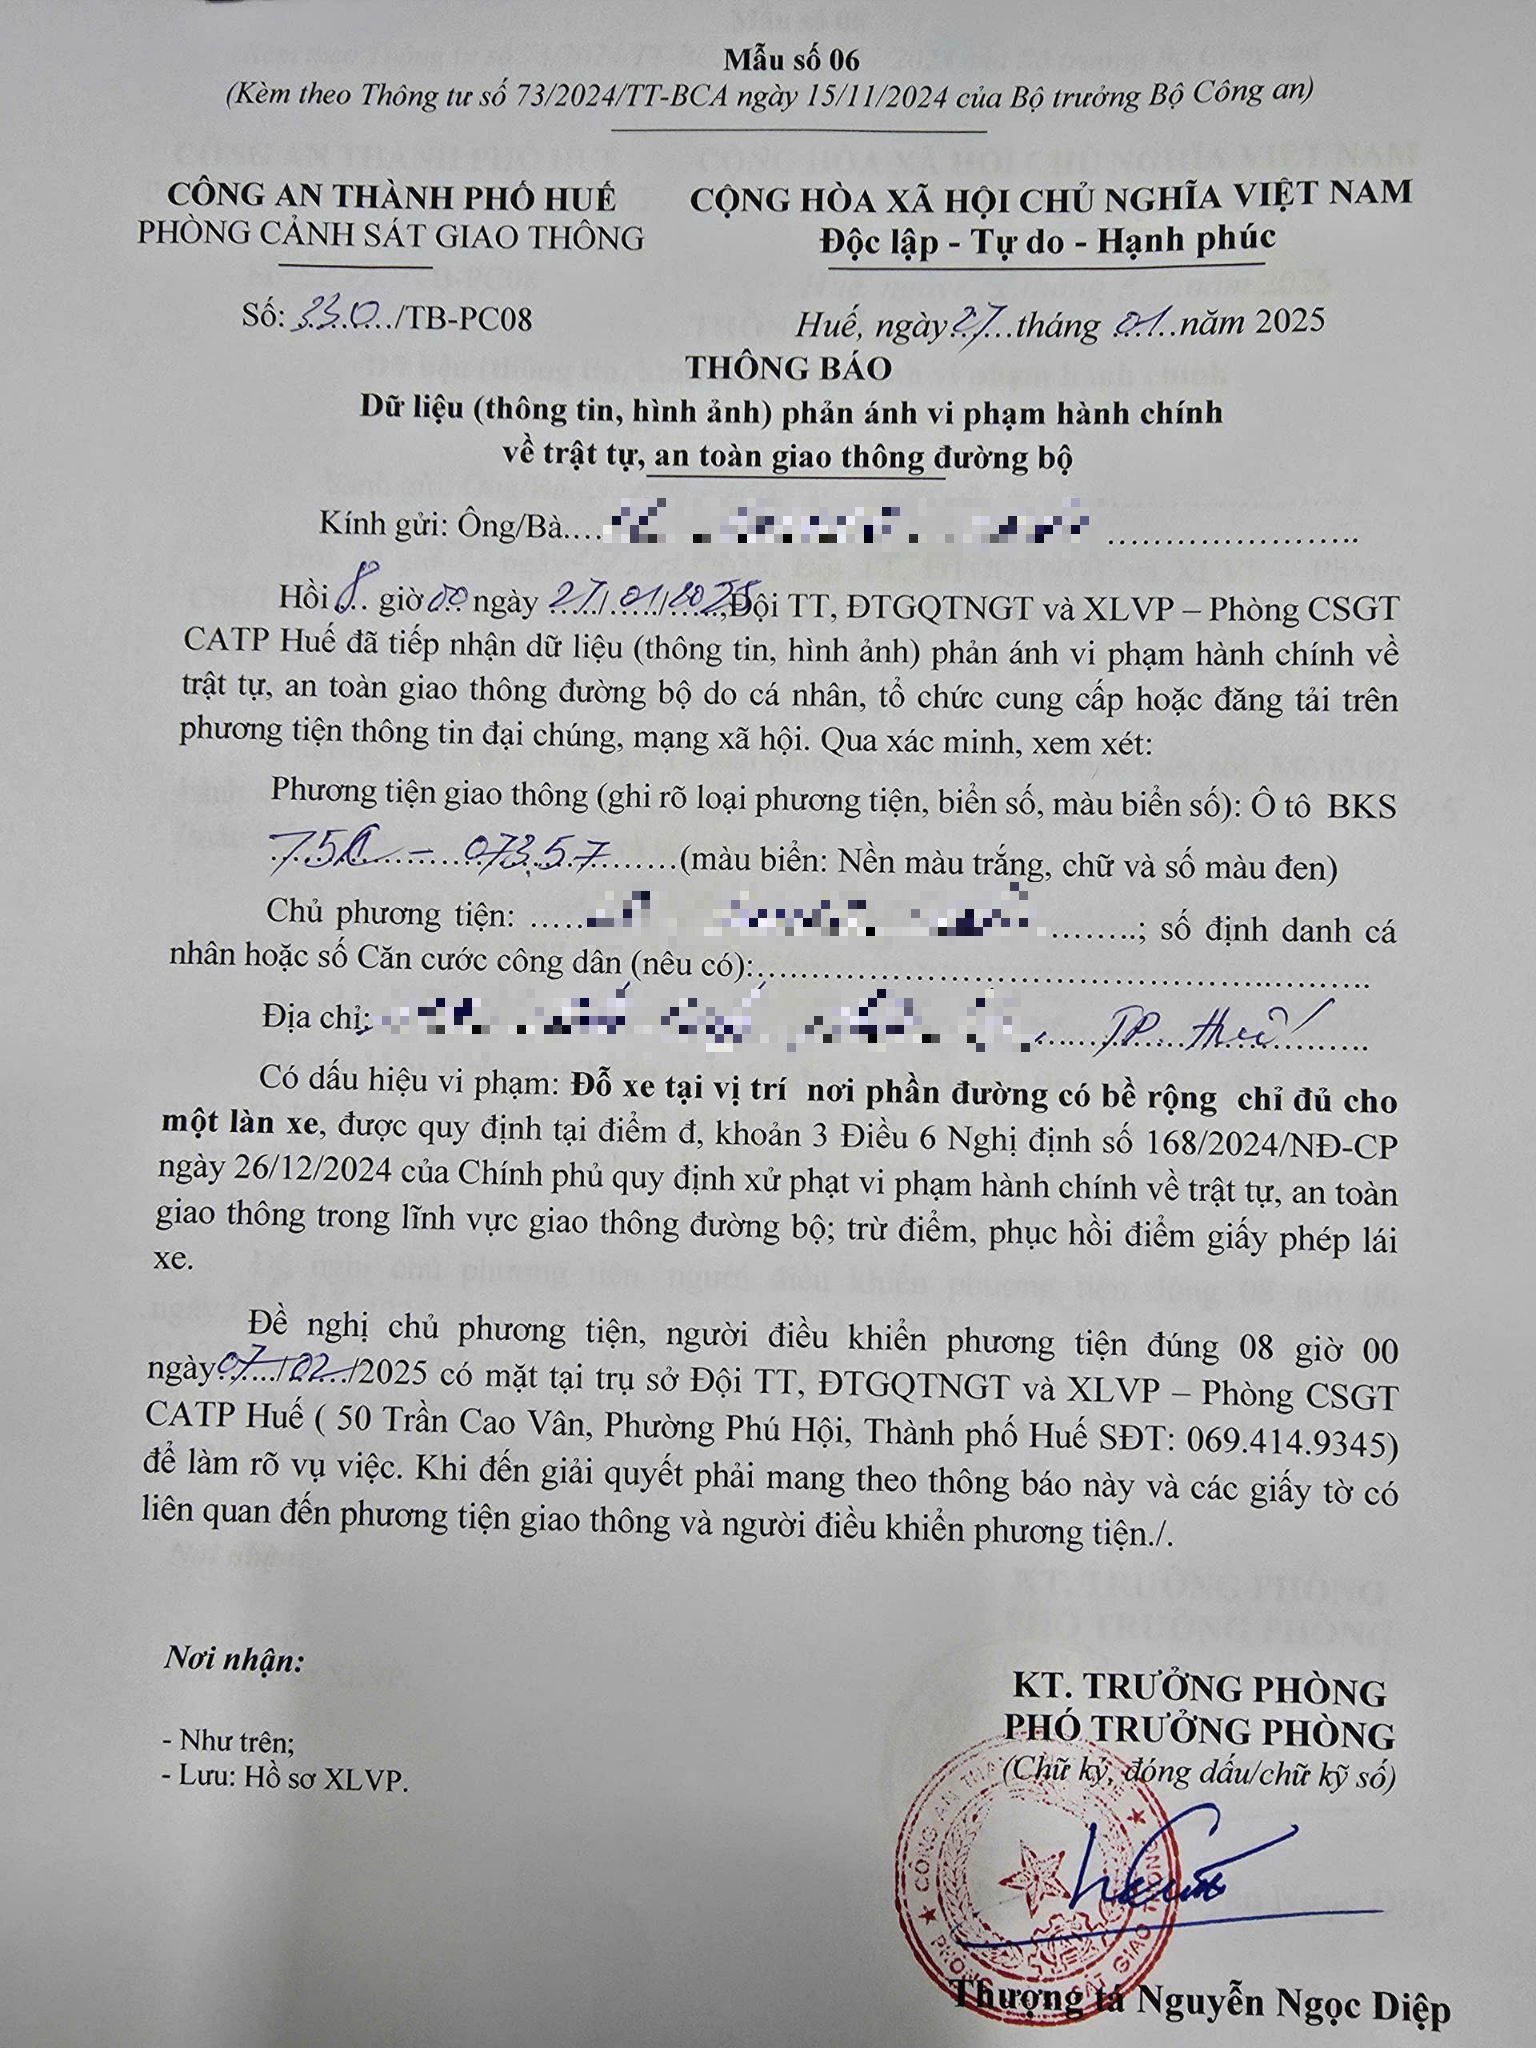 Mẫu số 06
(Kèm theo Thông tư số 73/2024/TT-BCA ngày 15/11/2024 của Bộ trưởng Bộ Công an)
CÔNG AN THÀNH PHỐ HUẾ
PHÒNG CẢNH SÁT GIAO THÔNG
CỘNG HÒA XÃ HỘI CHỦ NGHĨA VIỆT NAM
Độc lập - Tự do - Hạnh phúc
Số: 330/TB-PC08
Huế, ngày 27 tháng 01 năm 2025
THÔNG BÁO
Dữ liệu (thông tin, hình ảnh) phản ánh vi phạm hành chính
về trật tự, an toàn giao thông đường bộ
Kính gửi: Ông/Bà
Hồi 8 giờ 00 ngày 27/01/2025, Đội TT, ĐTGQTNGT và XLVP – Phòng CSGT
CATP Huế đã tiếp nhận dữ liệu (thông tin, hình ảnh) phản ánh vi phạm hành chính về
trật tự, an toàn giao thông đường bộ do cá nhân, tổ chức cung cấp hoặc đăng tải trên
phương tiện thông tin đại chúng, mạng xã hội. Qua xác minh, xem xét:
Phương tiện giao thông (ghi rõ loại phương tiện, biển số, màu biển số): Ô tô BKS
75C - 073.57 (màu biển: Nền màu trắng, chữ và số màu đen)
Chủ phương tiện: ; số định danh cá
nhân hoặc số Căn cước công dân (nêu có):
Địa chỉ: TP. Huế
Có dấu hiệu vi phạm: Đỗ xe tại vị trí nơi phần đường có bề rộng chỉ đủ cho
một làn xe, được quy định tại điểm đ, khoản 3 Điều 6 Nghị định số 168/2024/NĐ-CP
ngày 26/12/2024 của Chính phủ quy định xử phạt vi phạm hành chính về trật tự, an toàn
giao thông trong lĩnh vực giao thông đường bộ; trừ điểm, phục hồi điểm giấy phép lái
xe.
Đề nghị chủ phương tiện, người điều khiển phương tiện đúng 08 giờ 00
ngày 07/02/2025 có mặt tại trụ sở Đội TT, ĐTGQTNGT và XLVP – Phòng CSGT
CATP Huế ( 50 Trần Cao Vân, Phường Phú Hội, Thành phố Huế SĐT: 069.414.9345)
để làm rõ vụ việc. Khi đến giải quyết phải mang theo thông báo này và các giấy tờ có
liên quan đến phương tiện giao thông và người điều khiển phương tiện./.
Nơi nhận:
- Như trên;
- Lưu: Hồ sơ XLVP.
KT. TRƯỞNG PHÒNG
PHÓ TRƯỞNG PHÒNG
(Chữ ký, đóng dấu/chữ kỹ số)
Thượng tá Nguyễn Ngọc Diệp